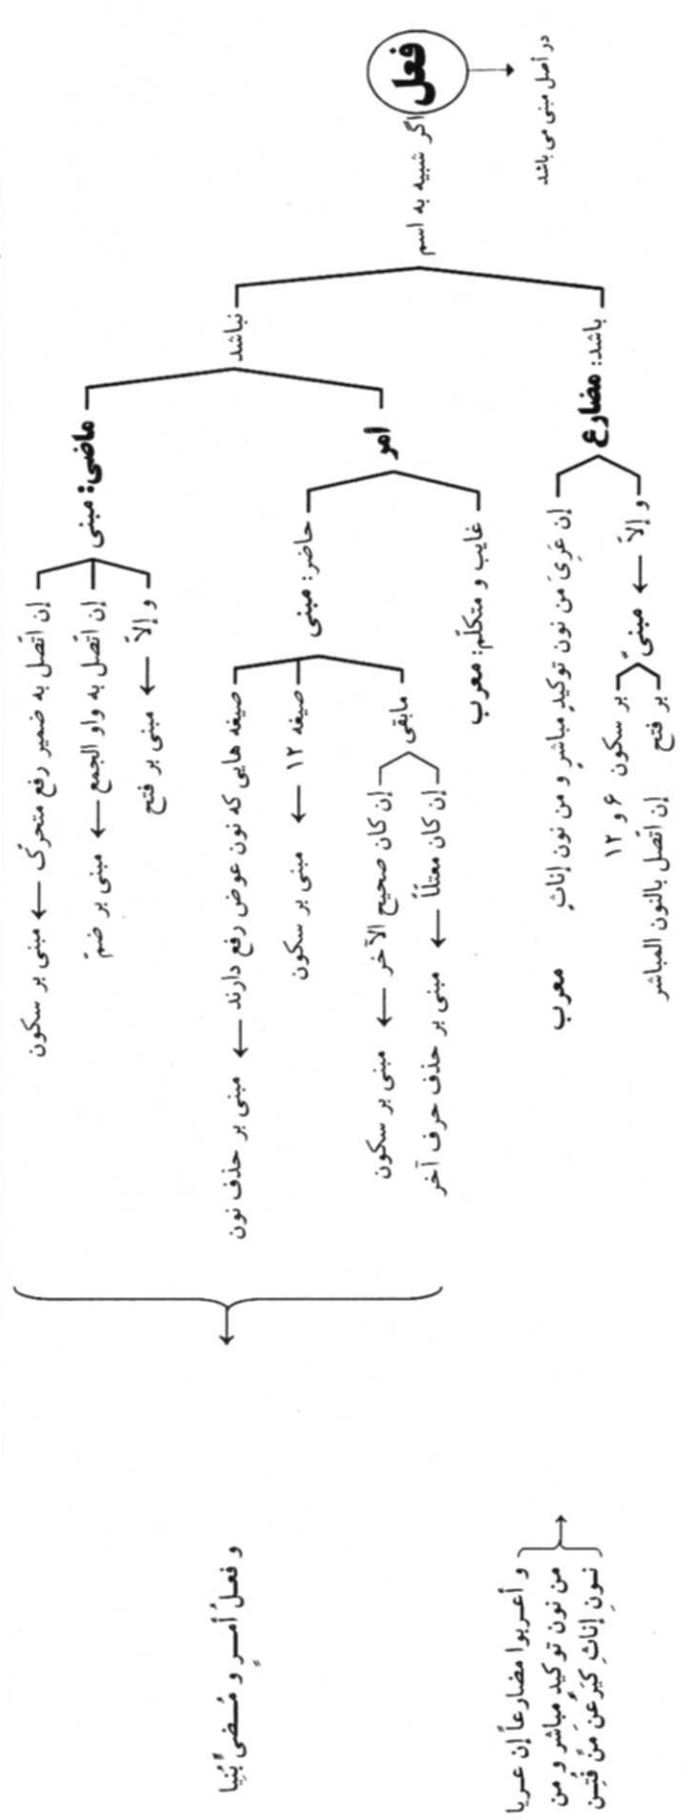 فعل
در أصل مبنی می باشد
اگر شبیه به اسم
باشد: مضارع
إن عَرِیَ من نون توکیدٍ مباشرٍ و من نون إناثٍ
معرب
و إلاّ ← مبنیّ
بر سکون ۶ و ۱۲
بر فتح إن اتّصل بالنون المباشر
نباشد
امر
غایب و متکلّم: معرب
حاضر: مبنی
مابقی
إن کان معتلّاً ← مبنی بر حذف حرف آخر
إن کان صحیح الآخر ← مبنی بر سکون
صیغه ۱۲ ← مبنی بر سکون
صیغه هایی که نون عوض رفع دارند ← مبنی بر حذف نون
ماضی: مبنی
و إلاّ ← مبنی بر فتح
إن اتّصل به واو الجمع ← مبنی بر ضمّ
إن اتّصل به ضمیر رفع متحرّک ← مبنی بر سکون
و أعـربوا مضارعاً إن عـریا
من نون توکیدٍ مباشر و من
نـونِ إناثٍ کَیَرُعنَ مَنْ فُتِـن
و فعـلُ أمـرٍ و مُـضیٍّ بُنِیا